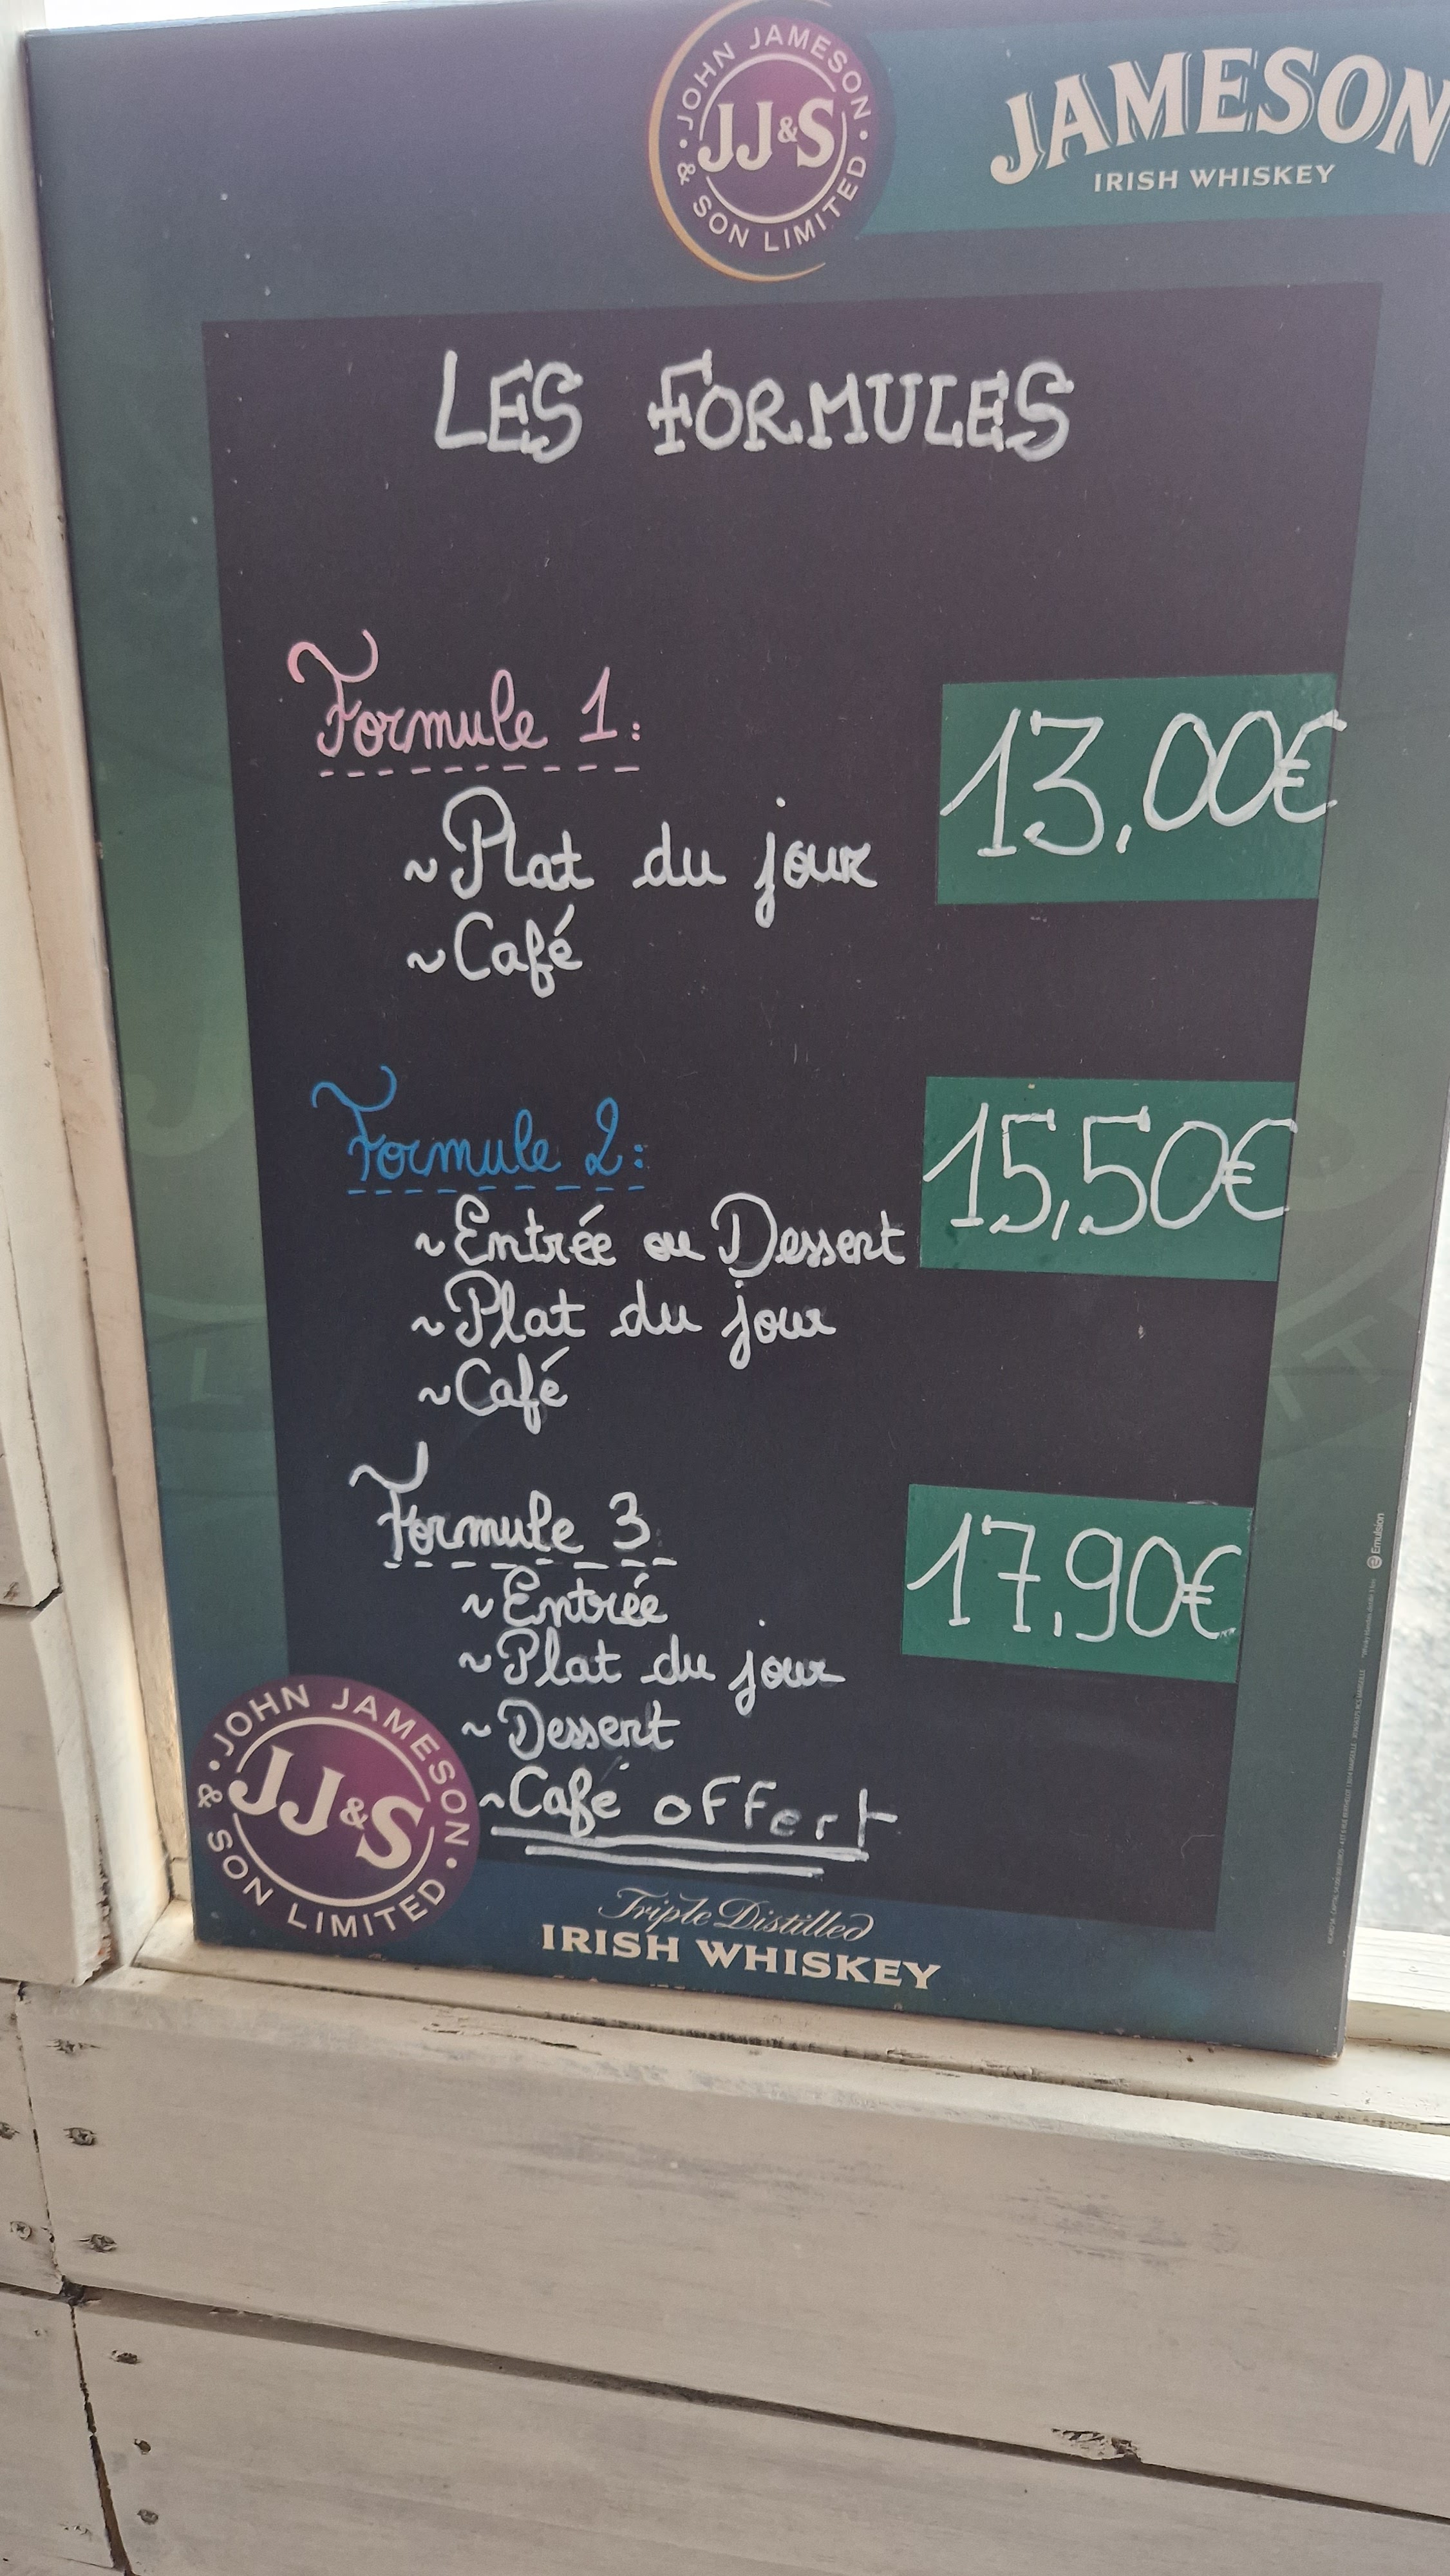 JOHN JAMESON
JJ&S
& SON LIMITED
JAMESON
IRISH WHISKEY
LES FORMULES
Formule 1:
13,00€
~Plat du jour
~Café
Formule 2:
15,50€
~Entrée ou Dessert
~Plat du jour
~Café
Formule 3
17,90€
~Entrée
~Plat du jour
~Dessert
~Café offert
JOHN JAMESON
JJ&S
& SON LIMITED
Triple Distilled
IRISH WHISKEY
Emulsion